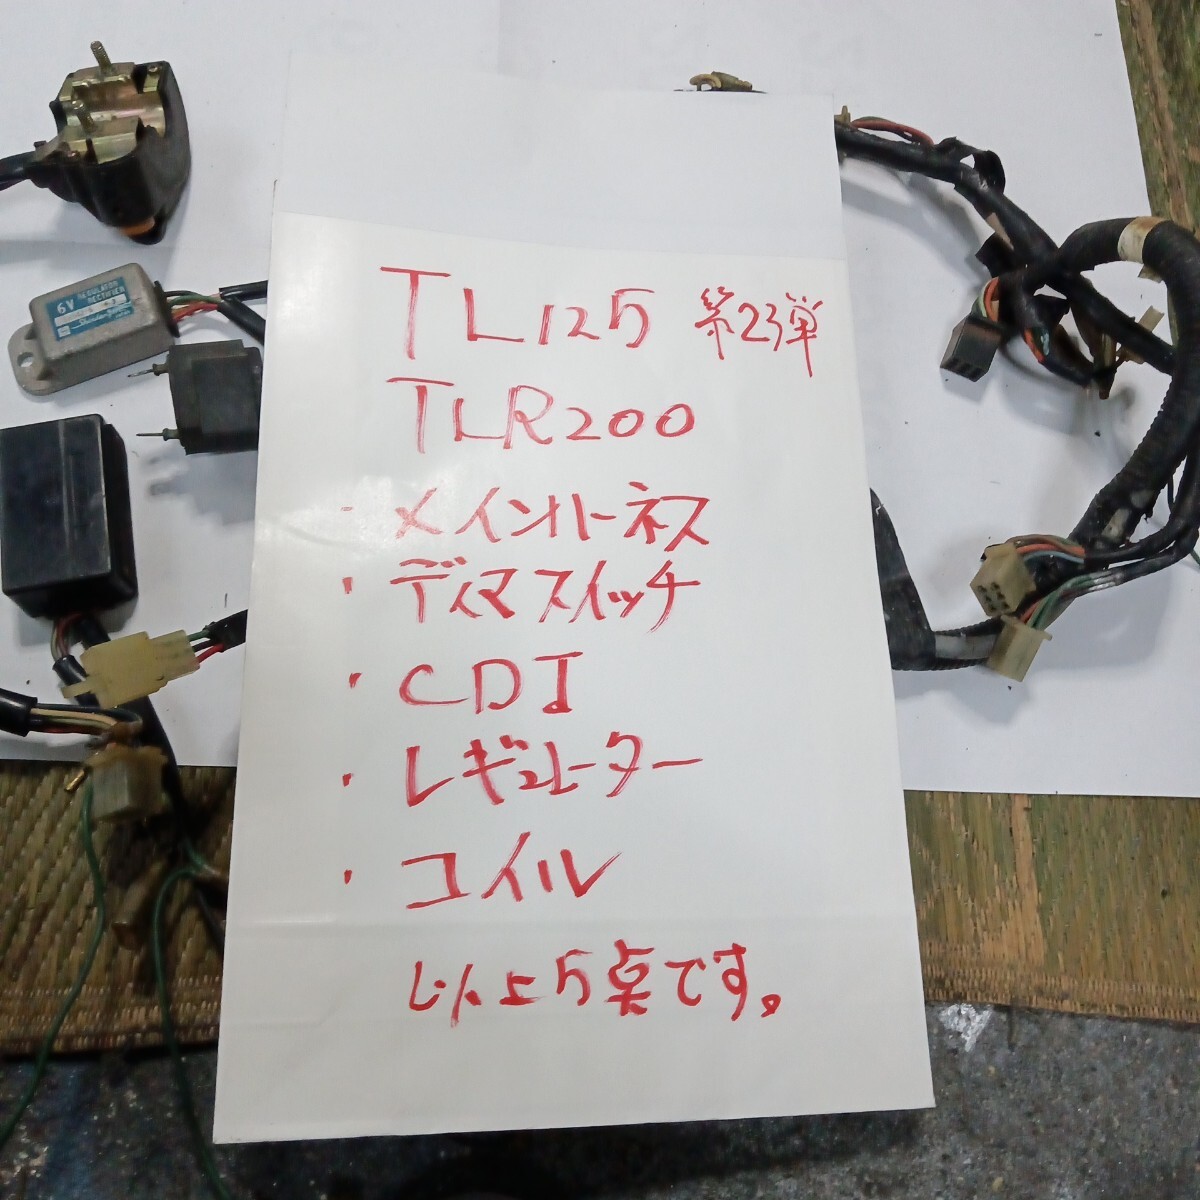 TL125 第23弾
TLR200
・メインハーネス
・ディマスイッチ
・CDI
・レギュレーター
・コイル
以上5点です。
6V REGULATOR
RECTIFIER